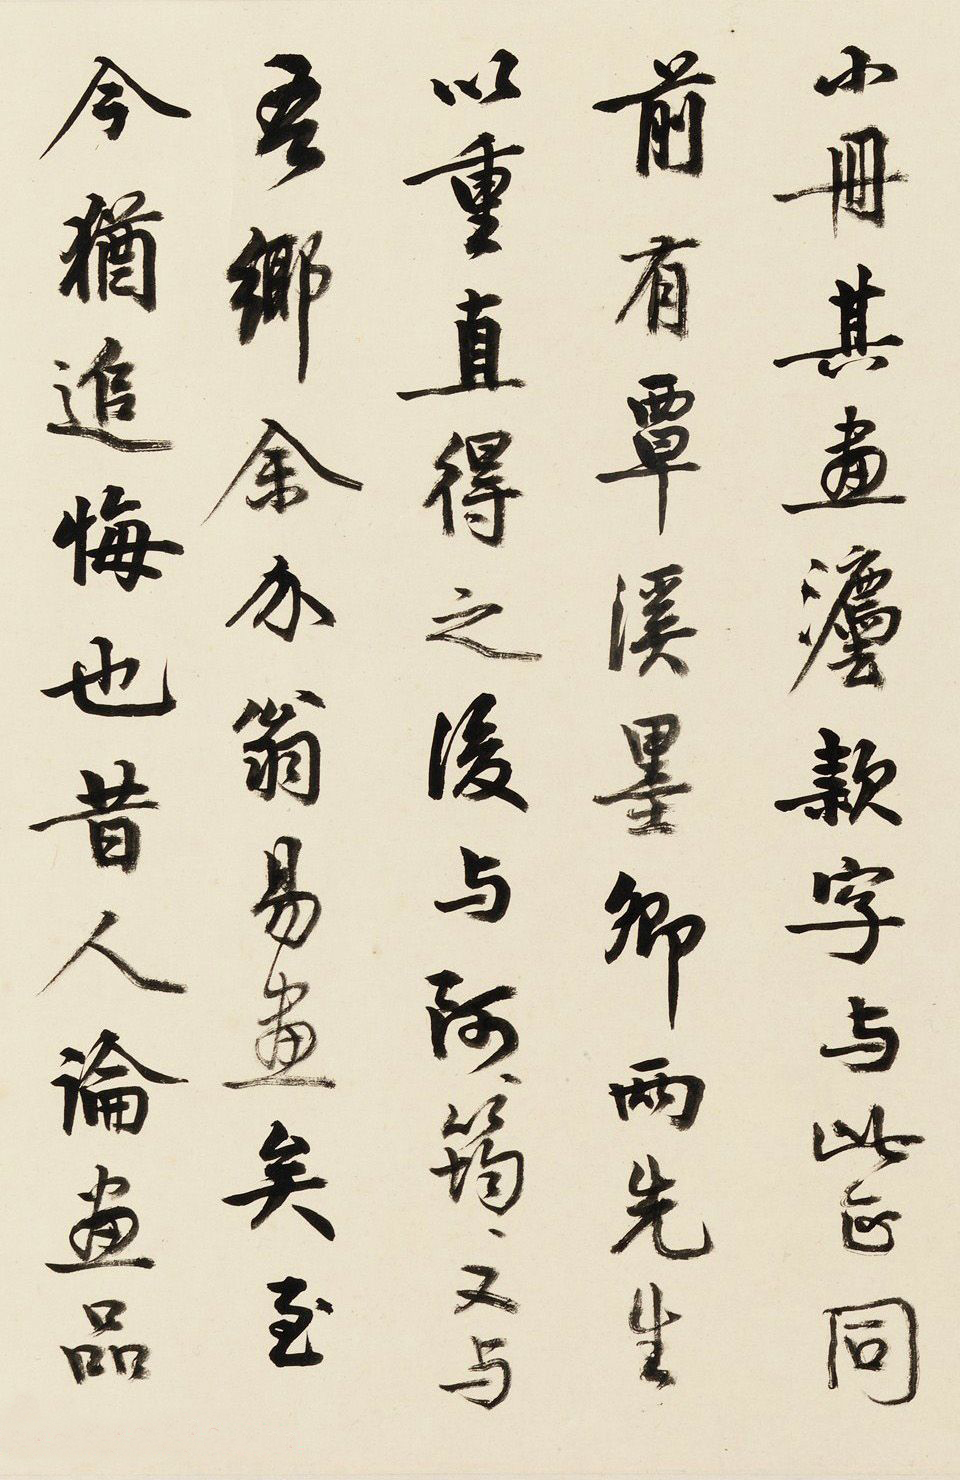 小冊其畫灋款字与此正同
前有覃溪墨卿兩先生
以重直得之後与阿筠筠又与
吾鄉余亦翁易畫矣至
今猶追悔也昔人論畫品